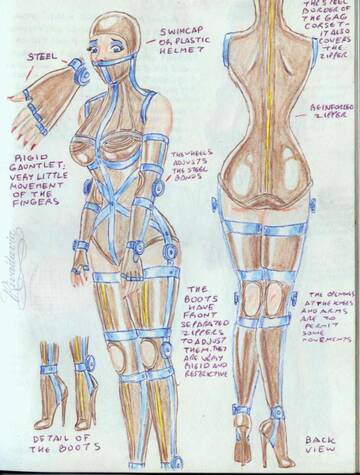 STEEL
SWIMCAP
OR PLASTIC
HELMET
THE STEEL
BORDER OF
THE GAG
CORSET-
IT ALSO
COVERS
THE
ZIPPER
REINFORCED
ZIPPER
RIGID
GAUNTLET;
VERY LITTLE
MOVEMENT
OF THE
FINGERS
THE WHEELS
ADJUSTS
THE STEEL
BONDS
THE
BOOTS
HAVE
FRONT
SEPARATED
ZIPPERS
TO ADJUST
THEM. THEY
ARE VERY
RIGID AND
RESTRICTIVE
THE OPENINGS
AT THE KNEES
AND ARMS
ARE TO
PERMIT
SOME
MOVEMENTS
DETAIL OF
THE BOOTS
BACK
VIEW